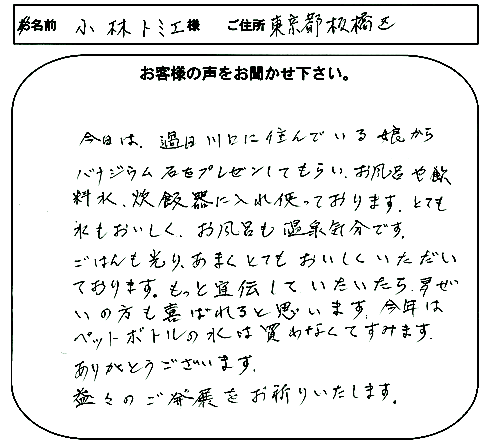 お名前 小林トミエ様 ご住所 東京都板橋区
お客様の声をお聞かせ下さい。
今日は、過日川口に住んでいる娘から
バナジウム石をプレゼントしてもらい、お風呂や飲
料水、炊飯器に入れ使っております。とても
水もおいしく、お風呂も温泉気分です。
ごはんも光り、あまくとてもおいしくいただい
ております。もっと宣伝していたいたら、大ぜ
いの方も喜ばれると思います。今年は
ペットボトルの水は買わなくてすみます。
ありがとうございます。
益々のご発展をお祈りいたします。